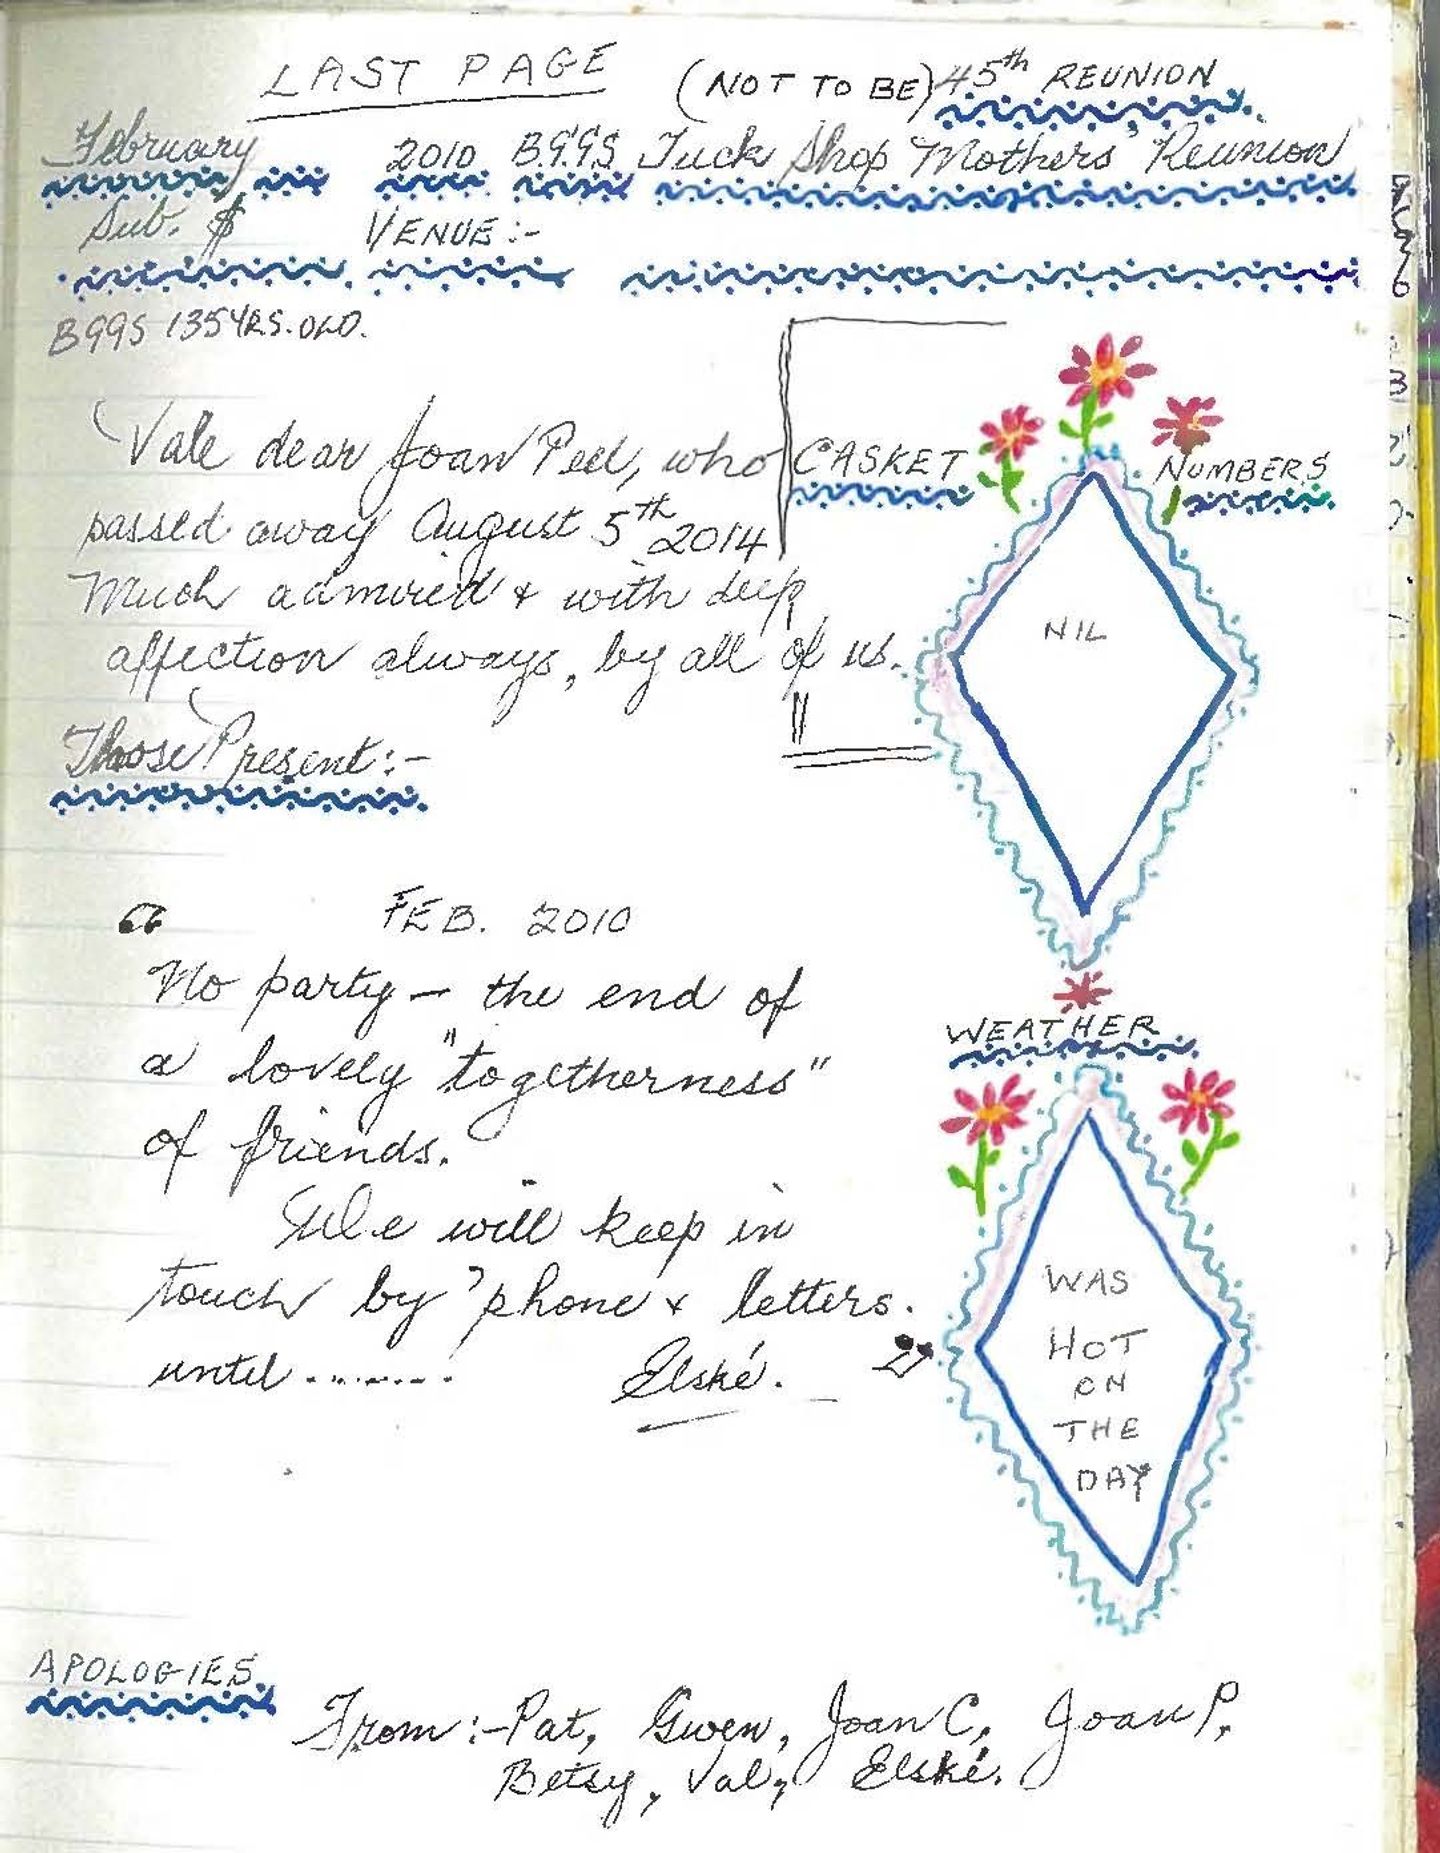 LAST PAGE (NOT TO BE) 45th REUNION
February 2010 B.G.G.S Tuck Shop Mothers' Reunion
Sub. $ VENUE:-
BGGS 135 YRS. OLD.
Vale dear Joan Peel, who
passed away August 5th 2014
Much admired & with deep
affection always, by all of us.
CASKET NUMBERS
NIL
Those Present:-
" FEB. 2010
No party - the end of
a lovely "togetherness"
of friends.
We will keep in
touch by 'phone & letters.
until ........ Elské.
WEATHER
WAS
HOT
ON
THE
DAY
APOLOGIES
From:- Pat, Gwen, Joan C, Joan P,
Betsy, Val, Elské.